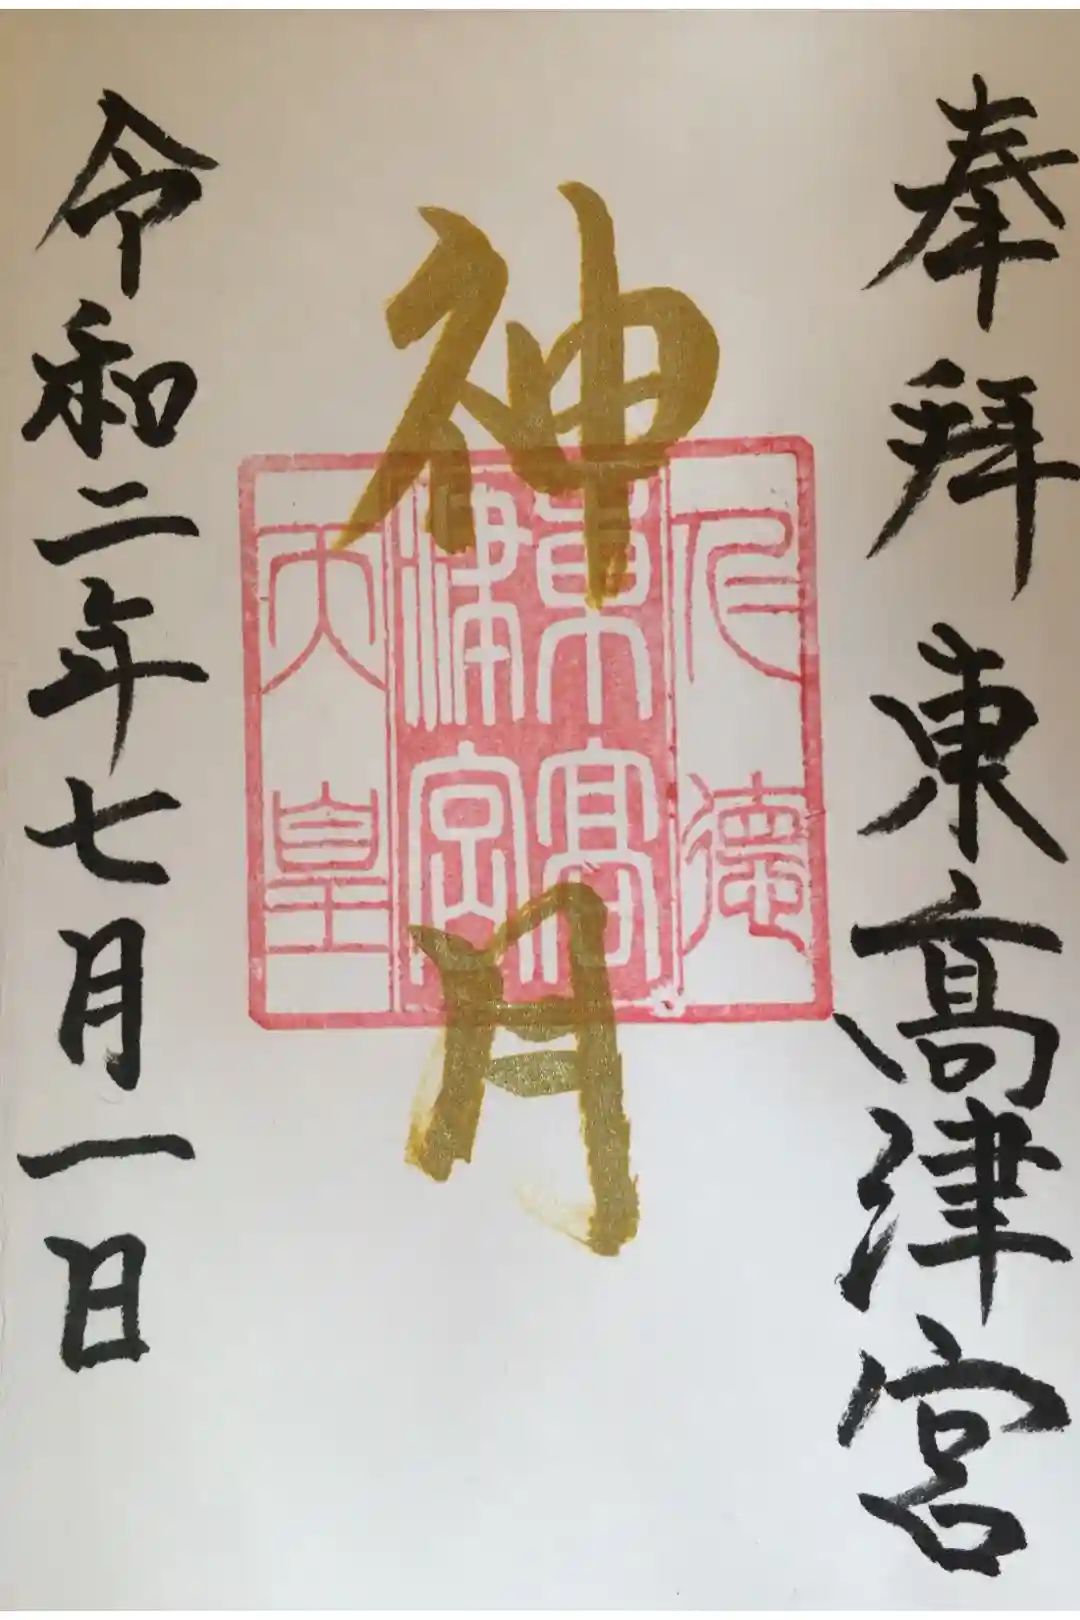 奉拝 東髙津宮
神月
仁徳
東高
津宮
天皇
令和二年七月一日